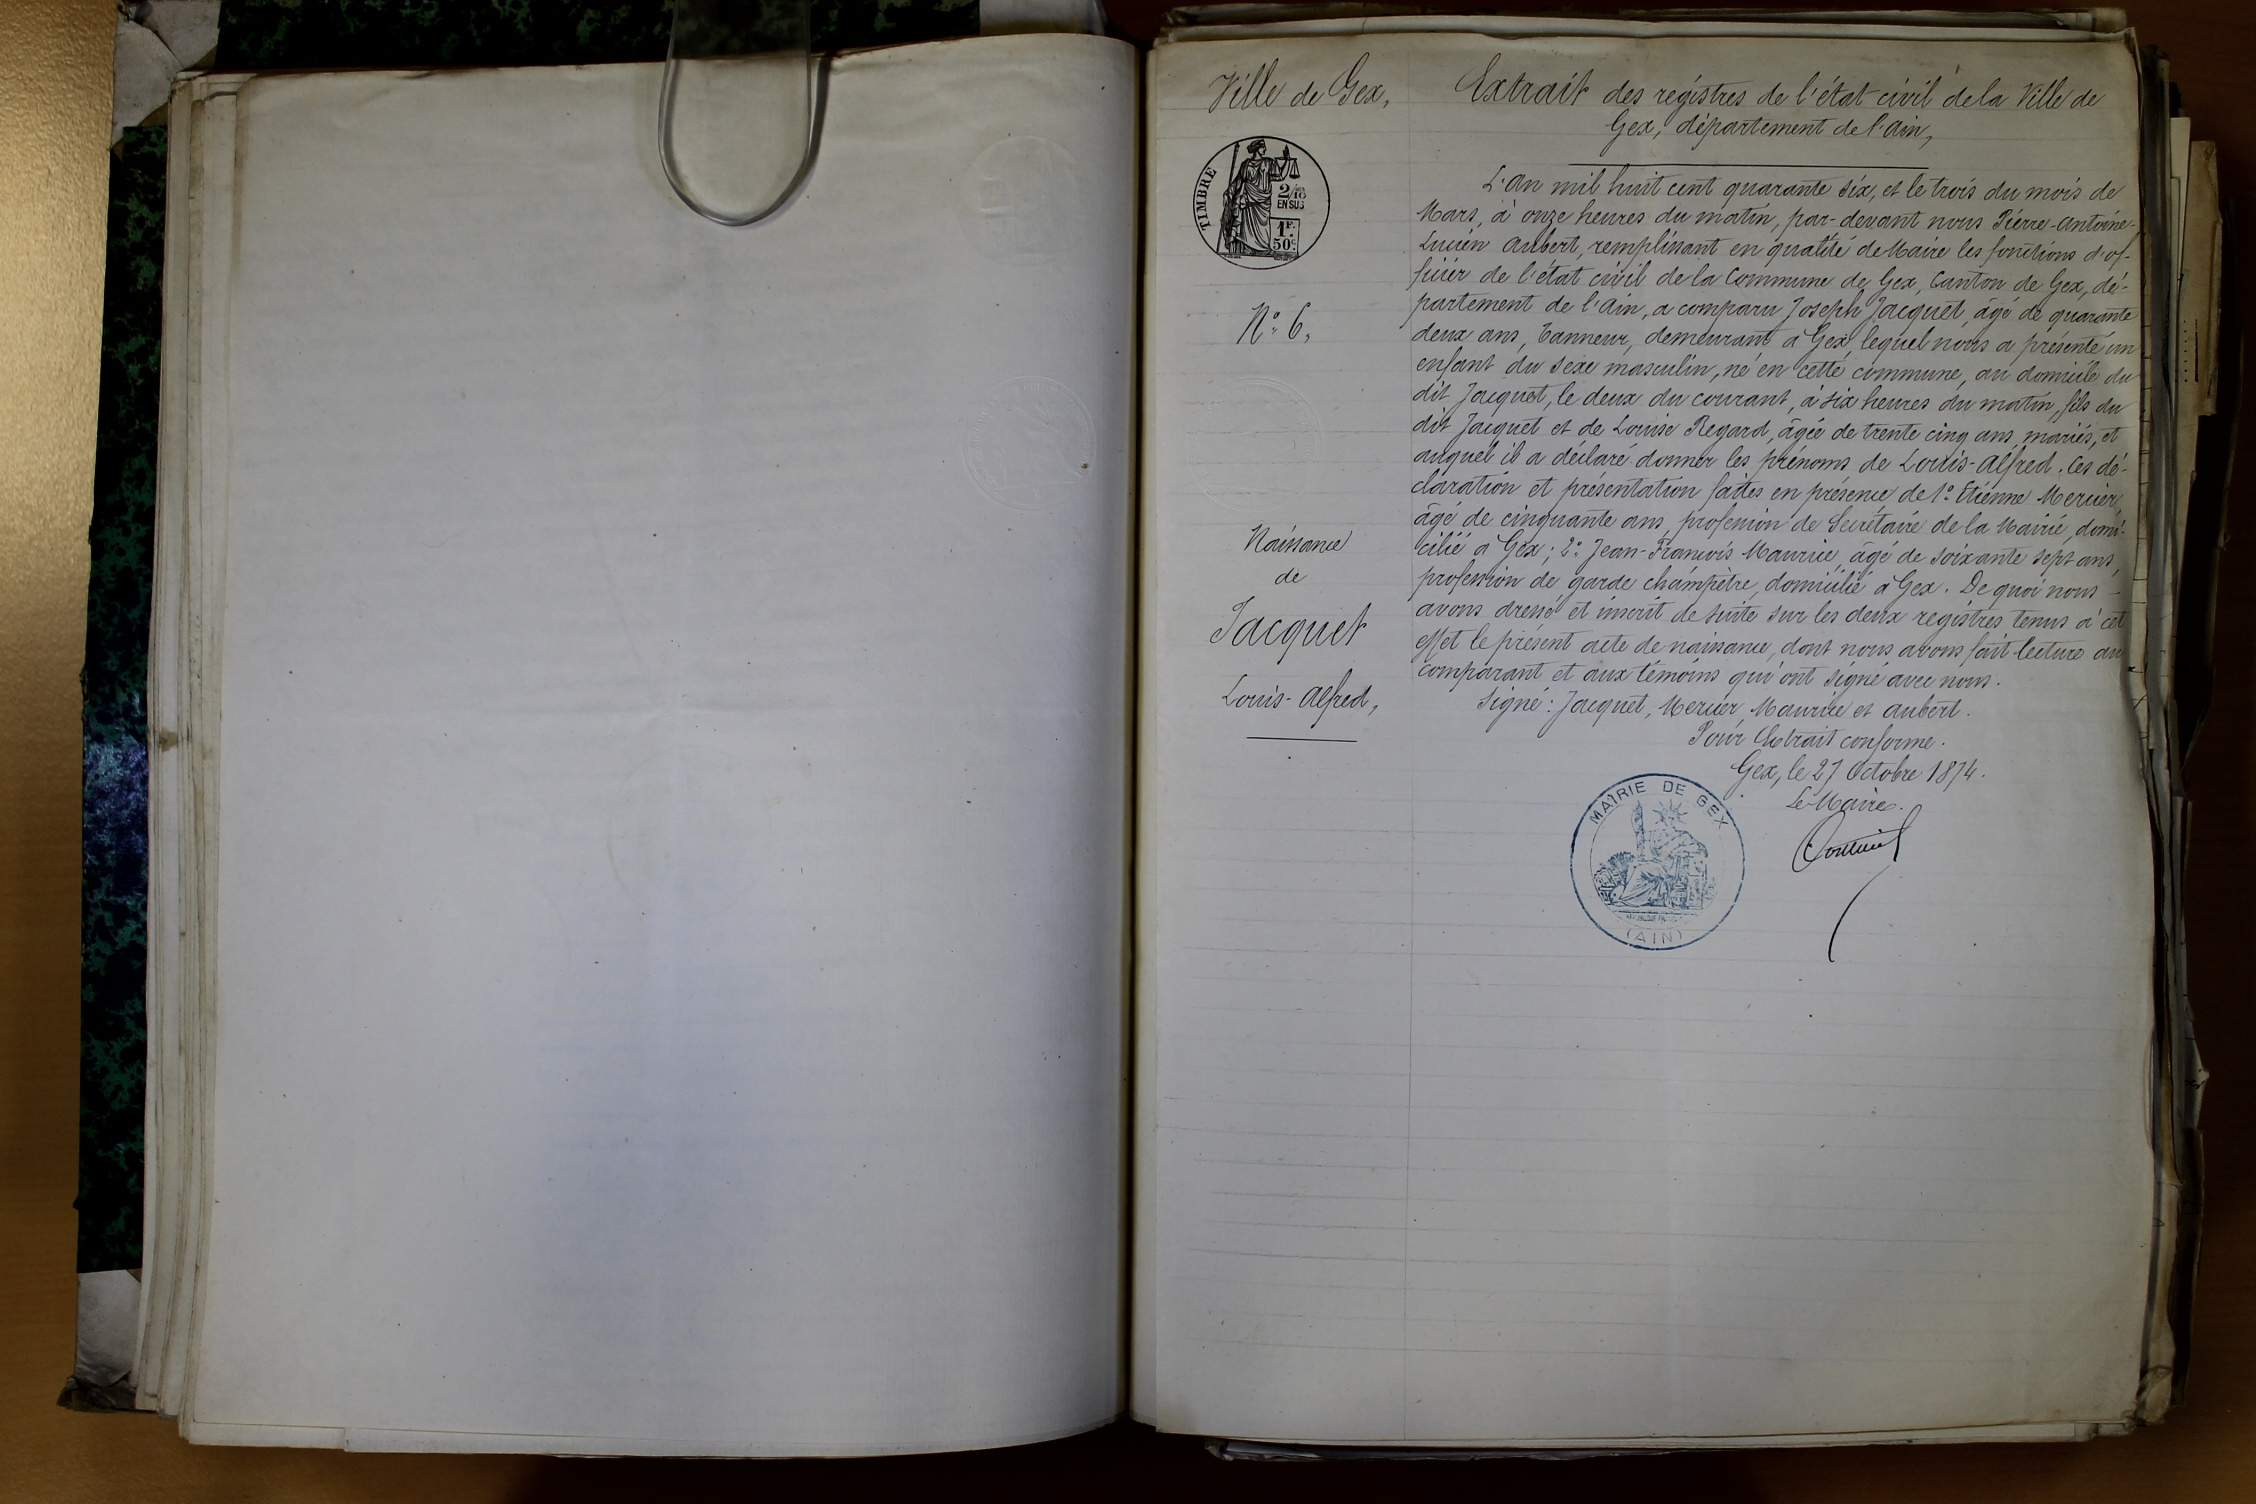 Ville de Gex,
TIMBRE
2/10
EN SUS
1F.
50c.
N° 6,
Naissance
de
Jacquet
Louis-Alfred,
Extrait des régistres de l'état civil de la Ville de
Gex, département de l'Ain,
L'An mil huit cent quarante six, et le trois du mois de
Mars, à onze heures du matin, par-devant nous Pierre-Antoine-
Lucien Aubert, remplissant en qualité de Maire les fonctions d'of-
ficier de l'état civil de la Commune de Gex, Canton de Gex, dé-
partement de l'Ain, a comparu Joseph Jacquet, âgé de quarante
deux ans, Tanneur, demeurant à Gex, lequel nous a présenté un
enfant du sexe masculin, né en cette commune, au domicile du
dit Jacquet, le deux du courant, à six heures du matin, fils du
dit Jacquet et de Louise Regard, âgée de trente cinq ans, mariés, et
auquel il a déclaré donner les prénoms de Louis-Alfred. Ces dé-
claration et présentation faites en présence de 1° Etienne Mercier,
âgé de cinquante ans, profession de Secrétaire de la Mairie, domi-
cilié à Gex; 2° Jean-François Maurice, âgé de soixante sept ans,
profession de garde champêtre, domicilié à Gex. De quoi nous -
avons dressé et inscrit de suite sur les deux régistres tenus à cet
effet le présent acte de naissance, dont nous avons fait lecture au
comparant et aux témoins qui ont signé avec nous.
Signé: Jacquet, Mercier, Maurice et Aubert.
Pour Extrait conforme.
Gex, le 27 Octobre 1874.
Le Maire.
MAIRIE DE GEX
(AIN)